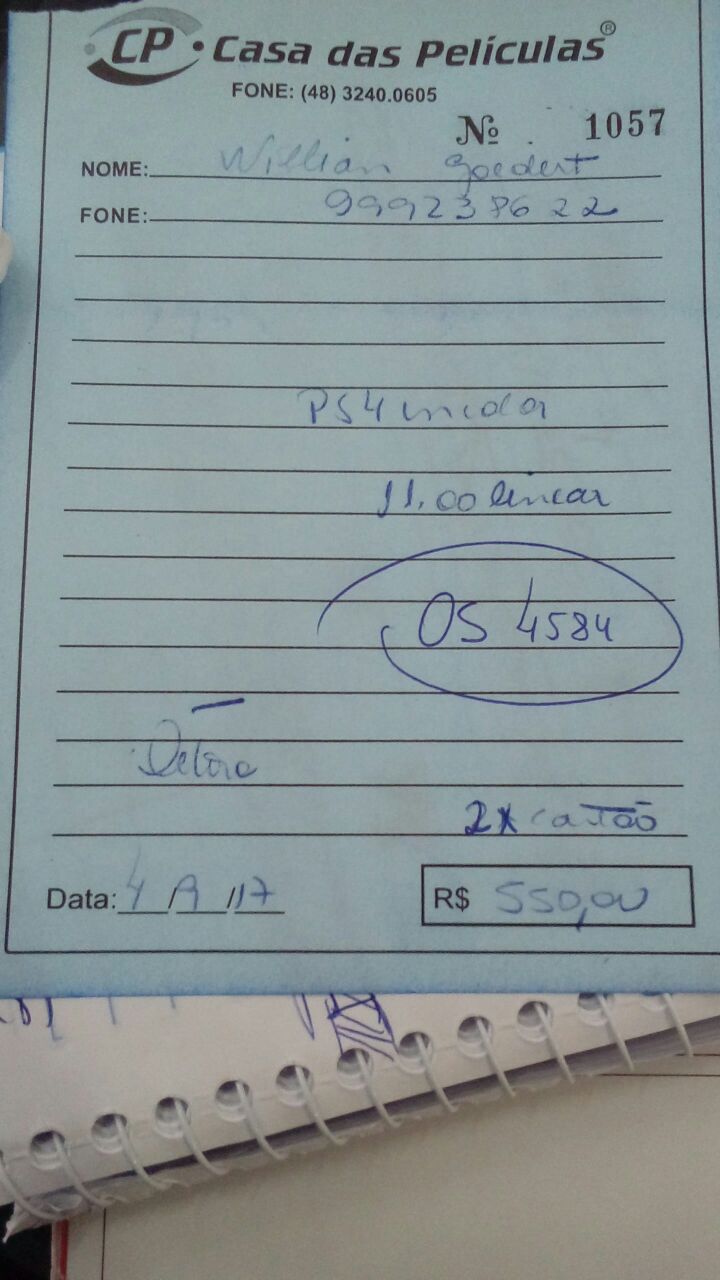 CP • Casa das Películas®
FONE: (48) 3240.0605
Nº 1057
NOME: Willian Goedert
FONE: 999238622
PS4 incolor
11.00 linear
OS 4584
2x cartão
Data: 4/9/17 R$ 550,00